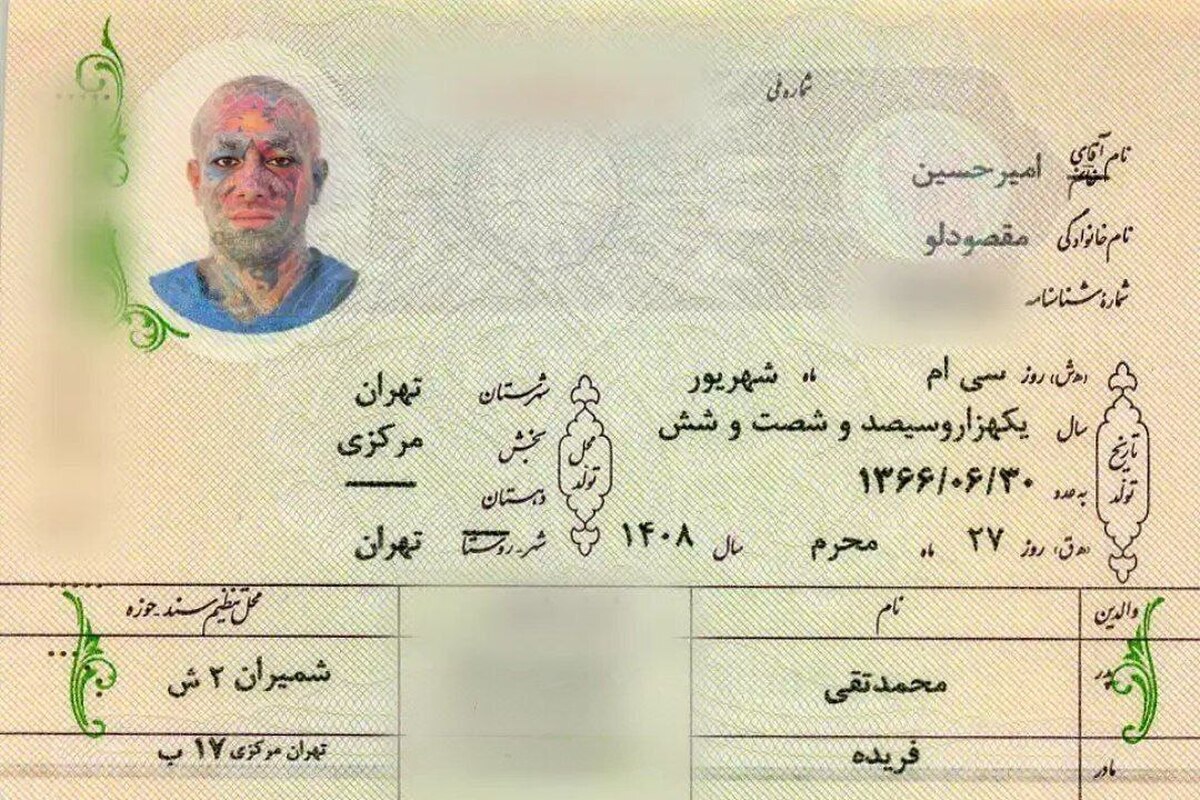 شماره ملی
نام آقای خانم امیرحسین
نام خانوادگی مقصودلو
شماره شناسنامه
تاریخ تولد
(ه‍.ش) روز سی ام ماه شهریور
سال یکهزاروسیصد و شصت و شش
به عدد ۱۳۶۶/۰۶/۳۰
(ه‍.ق) روز ۲۷ ماه محرم سال ۱۴۰۸
محل تولد
شهرستان تهران
بخش مرکزی
دهستان —
شهر-روستا تهران
والدین نام محل تنظیم سند-حوزه
پدر محمدتقی شمیران ۲ ش
مادر فریده تهران مرکزی ۱۷ ب